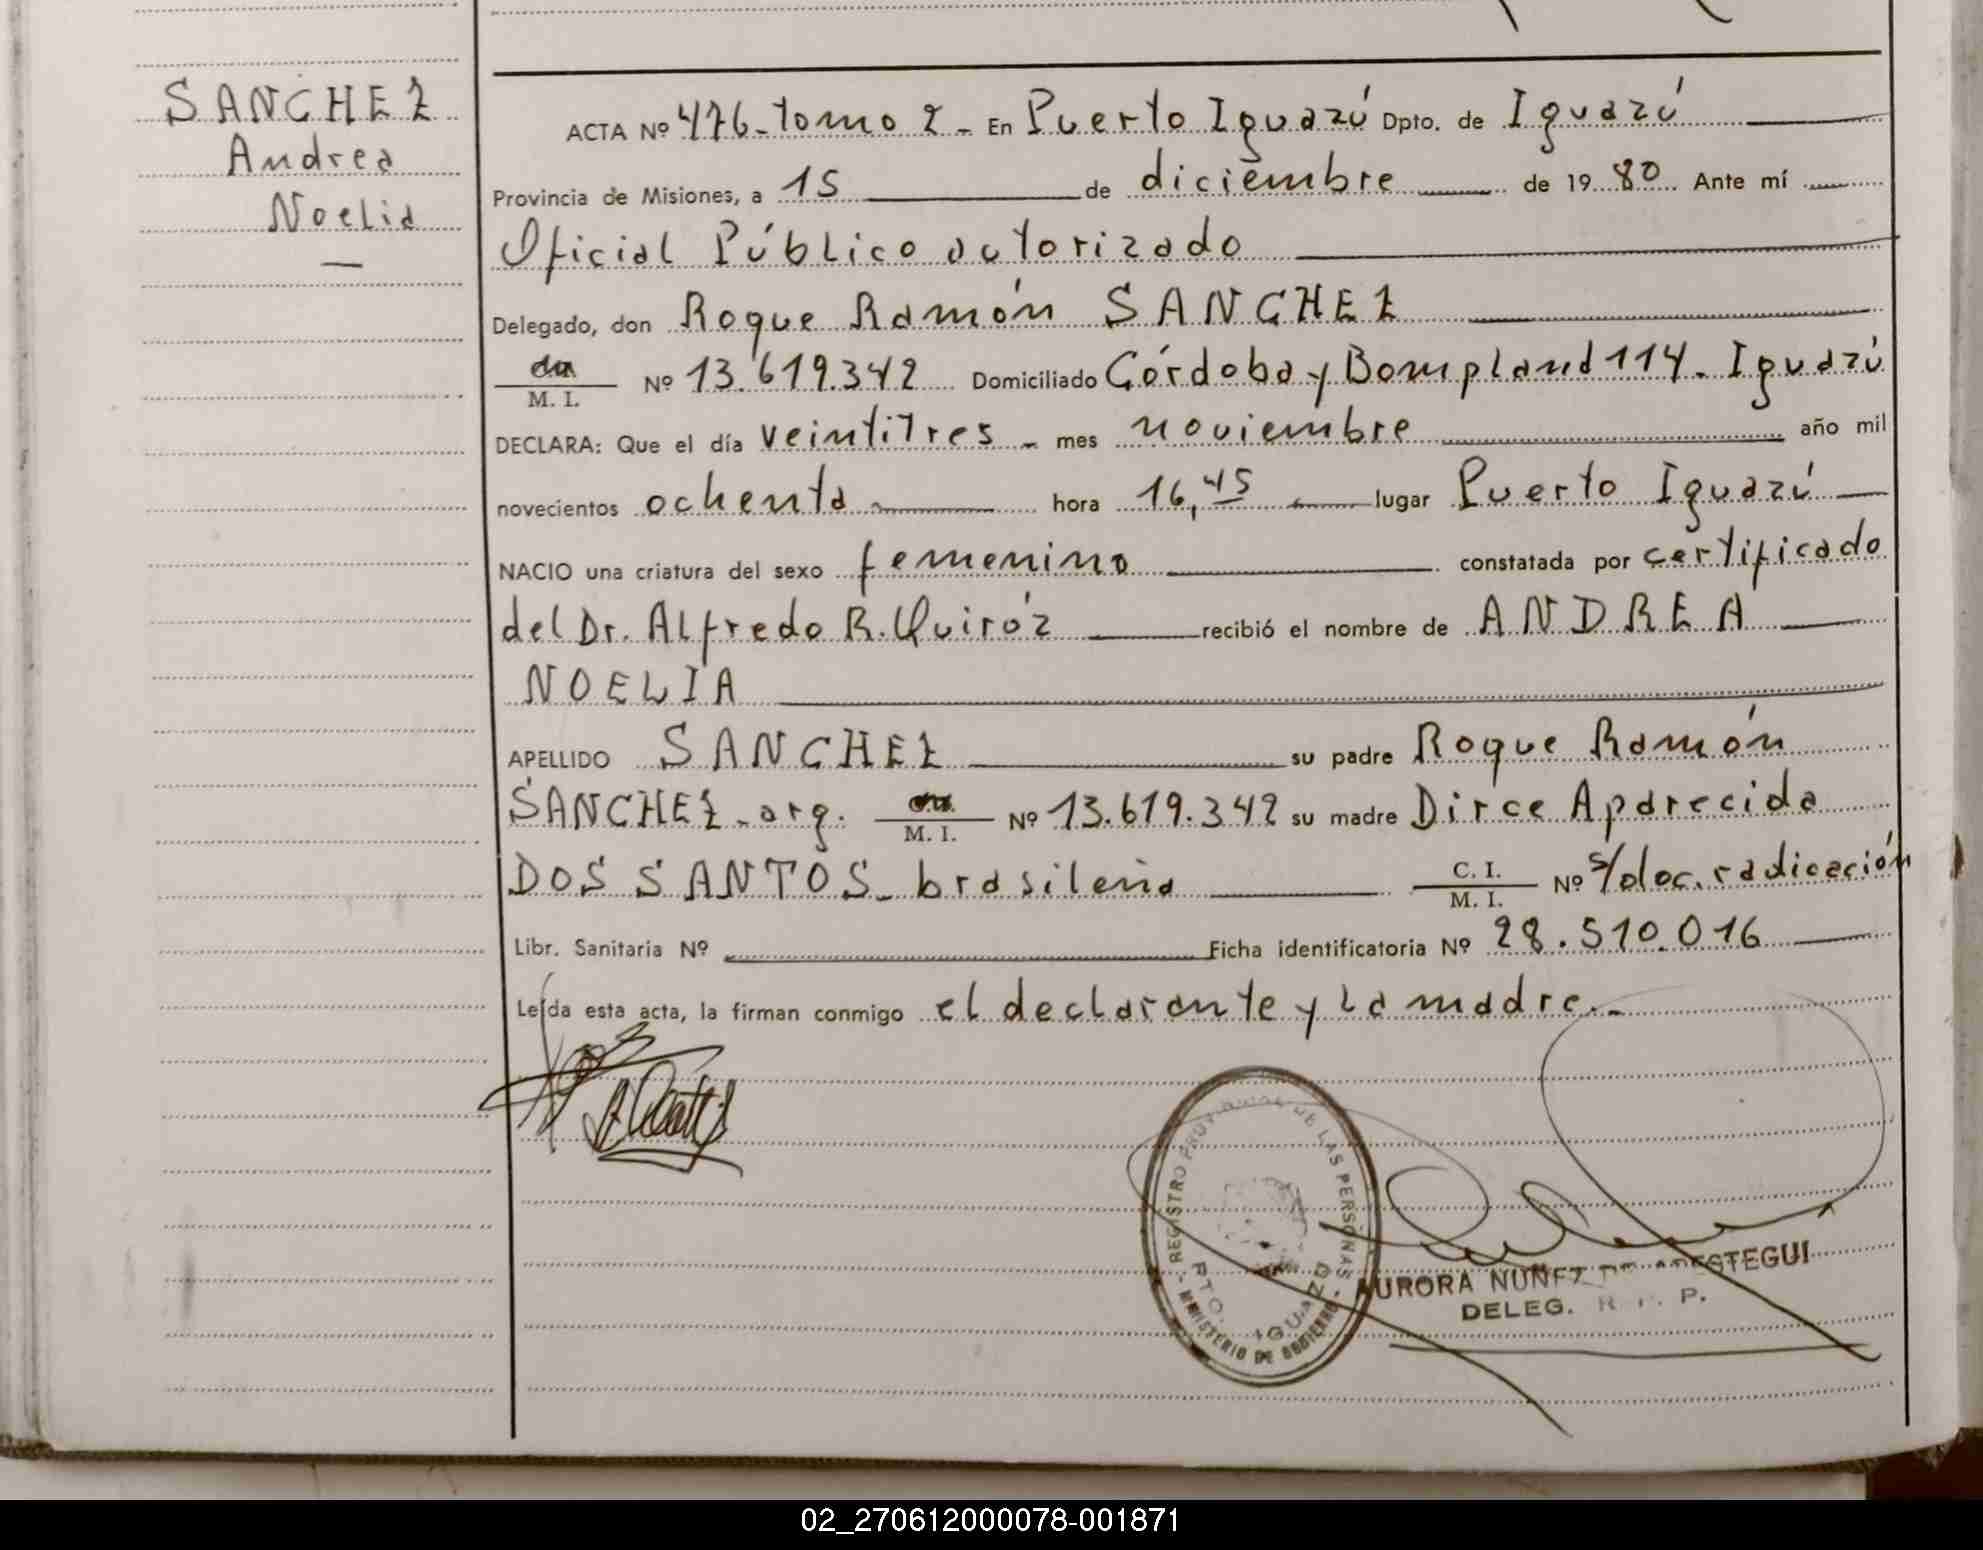 SANCHEZ
Andrea
Noelia
ACTA Nº 476-tomo 2- En Puerto Iguazú Dpto. de Iguazú
Provincia de Misiones, a 15 de diciembre de 1980 Ante mí
Oficial Público autorizado
Delegado, don Roque Ramón SANCHEZ
M. I. Nº 13.619.342 Domiciliado Córdoba y Bompland 114. Iguazú
DECLARA: Que el día veintitres - mes noviembre año mil
novecientos ochenta hora 16,45 lugar Puerto Iguazú
NACIO una criatura del sexo femenino constatada por certificado
del Dr. Alfredo R. Quiróz recibió el nombre de ANDREA
NOELIA
APELLIDO SANCHEZ su padre Roque Ramón
SANCHEZ-arg. M. I. Nº 13.619.342 su madre Dirce Aparecida
DOS SANTOS- brasileña C. I. M. I. Nº s/doc. radicación
Libr. Sanitaria Nº Ficha identificatoria Nº 28.510.016
Leída esta acta, la firman conmigo el declarante y la madre.-
REGISTRO PROVINCIAL DE LAS PERSONAS
PTO. IGUAZU
MINISTERIO DE GOBIERNO
AURORA NUÑEZ DE
DELEG. R. P.
02_270612000078-001871